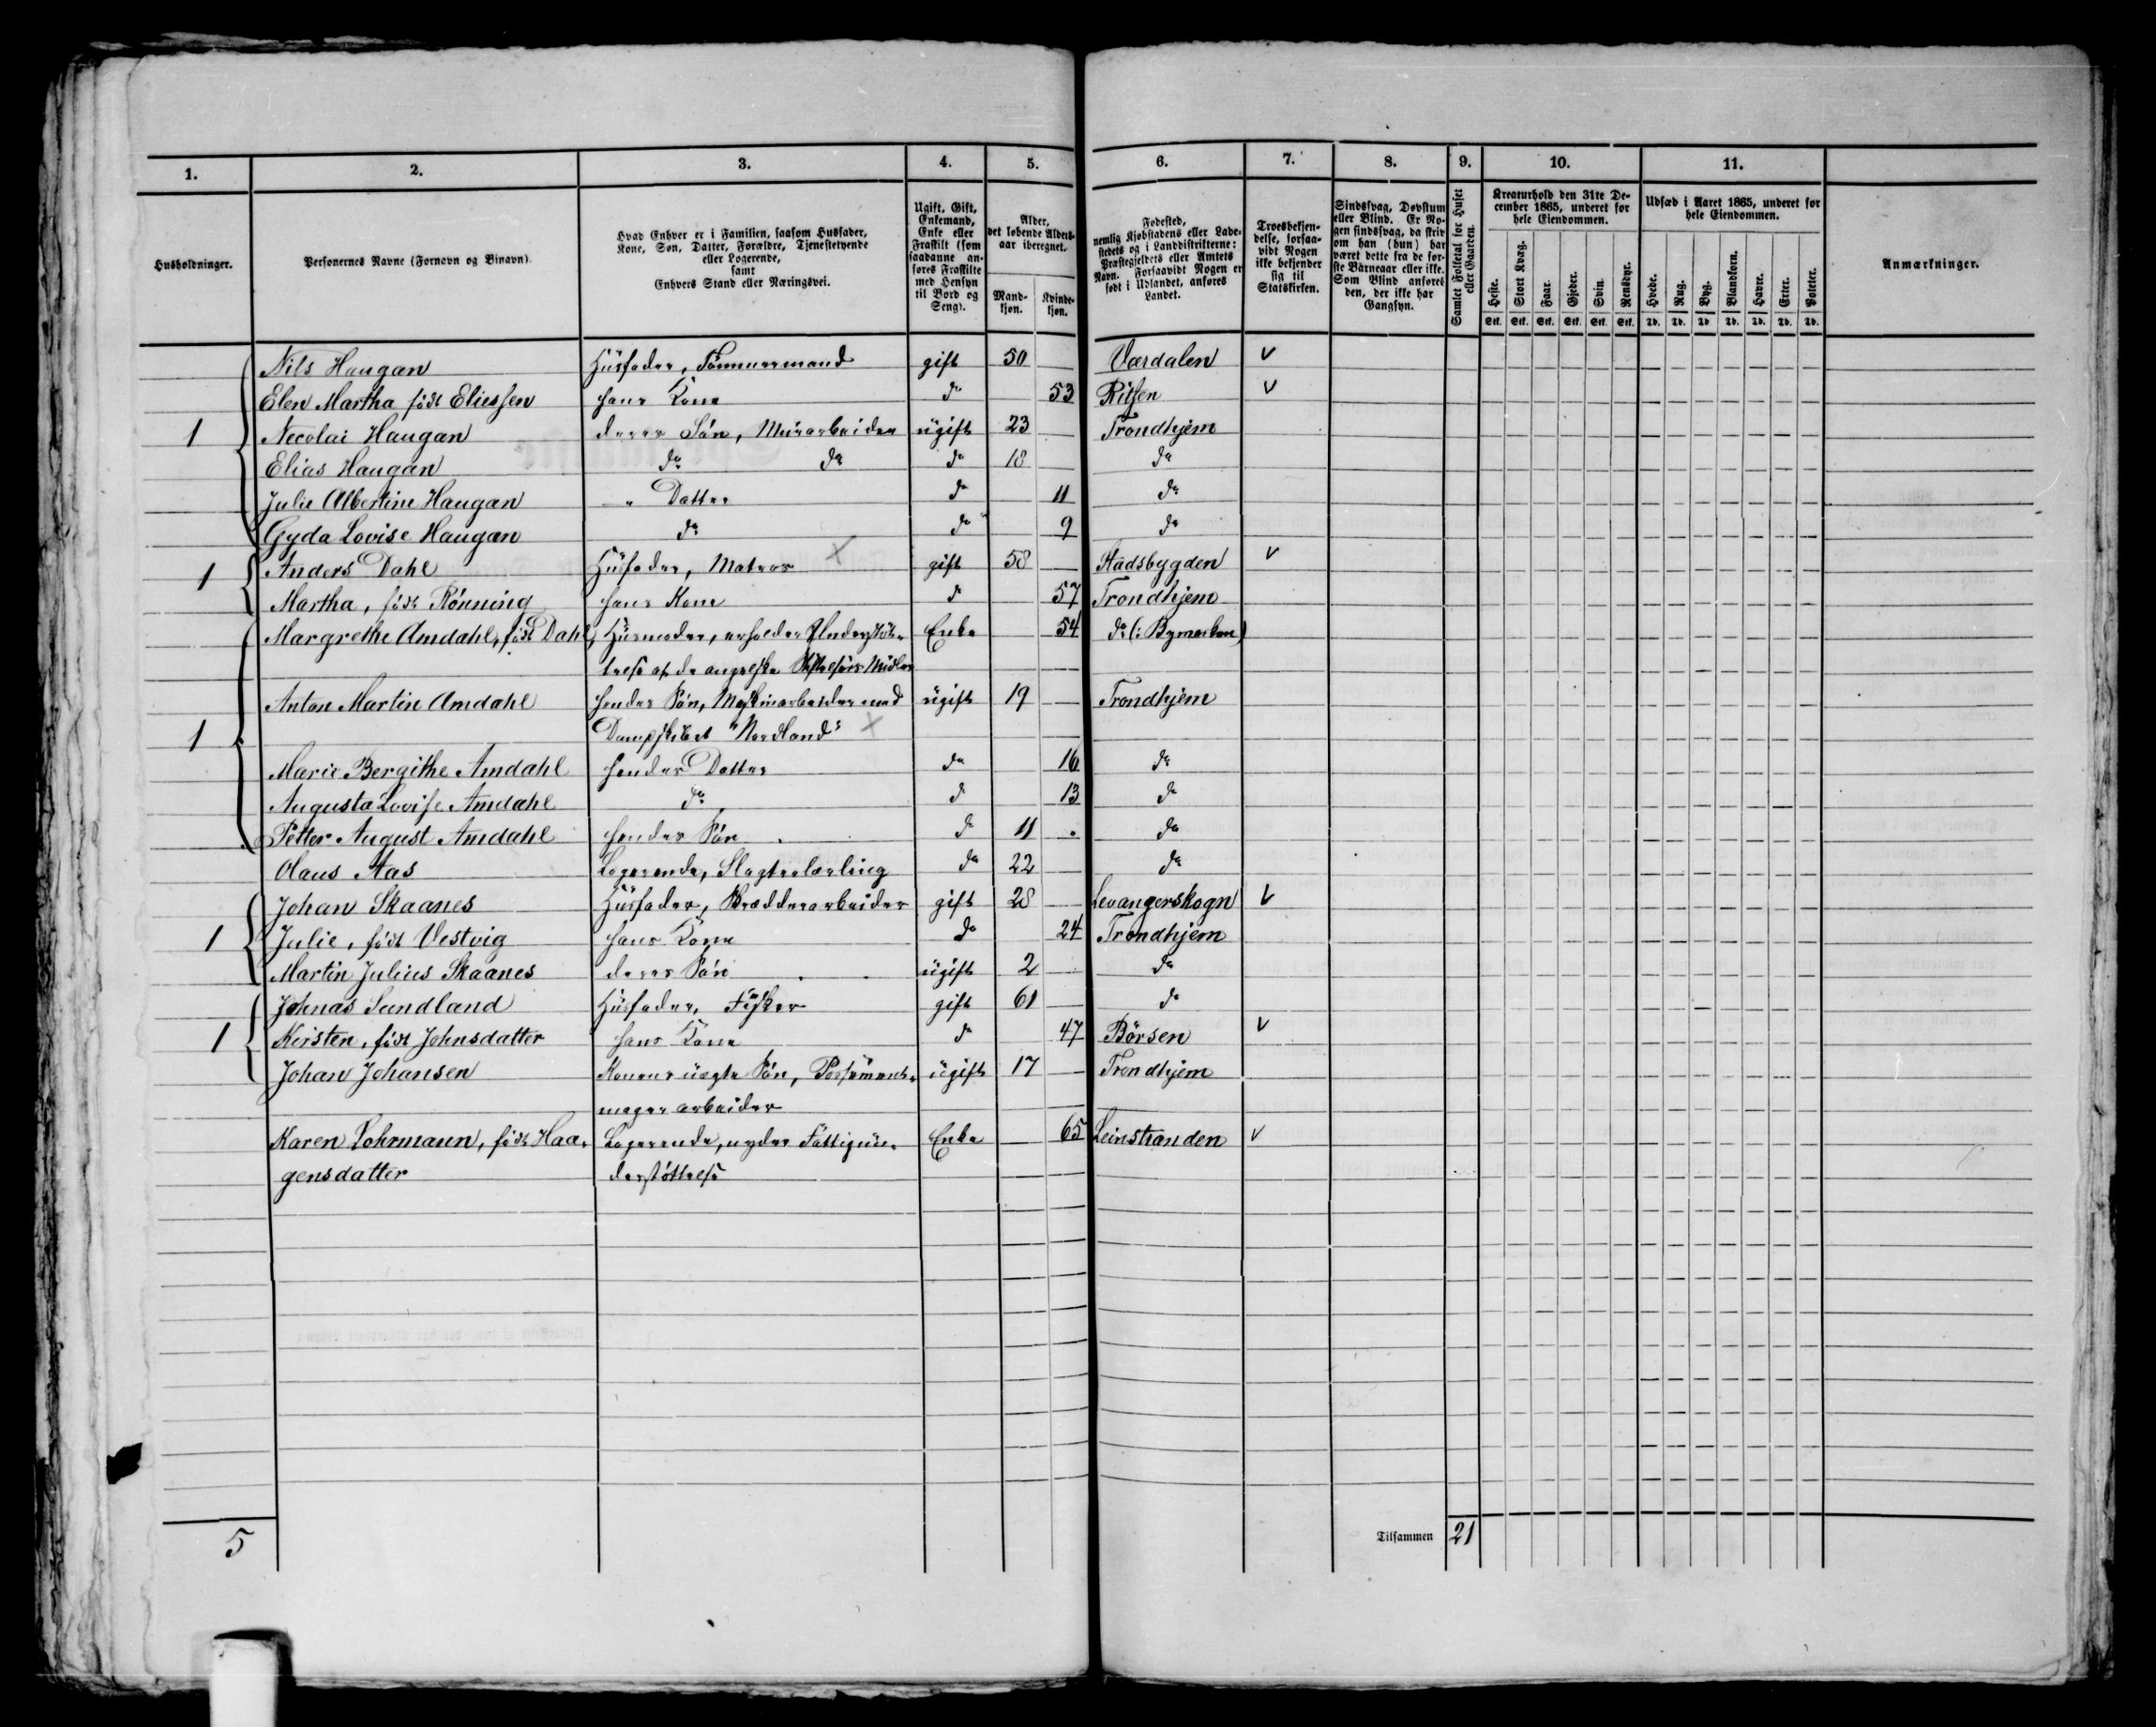 1. 2. 3. 4. 5. 6. 7. 8. 9. 10. 11.
Husholdninger.
Personernes Navne (Fornavn og Binavn).
Hvad Enhver er i Familien, saasom Husfader,
Kone, Søn, Datter, Forældre, Tjenestetyende
eller Logerende,
samt
Enhvers Stand eller Næringsvei.
Ugift, Gift,
Enkemand,
Enke eller
Fraskilt (som
saadanne an-
føres Fraskilte
med Hensyn
til Bord og
Seng).
Alder,
det løbende Alders-
aar iberegnet.
Mand-
kjøn.
Kvinde-
kjøn.
Fødested,
nemlig Kjøbstadens eller Lade-
stedets og i Landdistrikterne:
Præstegjeldets eller Amtets
Navn. Forsaavidt Nogen er
født i Udlandet, anføres
Landet.
Troesbekjen-
delse, forsaa-
vidt Nogen
ikke bekjender
sig til
Statskirken.
Sindssvag, Døvstum
eller Blind. Er No-
gen sindssvag, da skriv
om han (hun) har
været dette fra de før-
ste Barneaar eller ikke.
Som Blind anføres
den, der ikke har
Gangsyn.
Samlet Folketal for Huset
eller Gaarden.
Kreaturhold den 31te De-
cember 1865, underet for
hele Eiendommen.
Heste. Stort Kvæg. Faar. Gjeder. Svin. Rensdyr.
Stk. Stk. Stk. Stk. Stk. Stk.
Udsæd i Aaret 1865, underet for
hele Eiendommen.
Hvede. Rug. Byg. Blandkorn. Havre. Erter. Poteter.
Td. Td. Td. Td. Td. Td. Td.
Anmærkninger.
Nils Haugan Husfader, Tømmermand gift 50 Værdalen v
Elen Martha født Eliessen hans Kone do 53 Rissen v
1 Necolai Haugan deres Søn, Murarbeider ugift 23 Trondhjem
Elias Haugan do do do 18 do
Julie Albertine Haugan " Datter do 11 do
Gyda Lovise Haugan do do 9 do
1 Anders Dahl Husfader, Matros X gift 58 Stadsbygden v
Martha, født Rønning hans Kone do 57 Trondhjem
Margrethe Amdahl, født Dahl, Husmoder, erholder Understøt- Enke 54 do (: Bymarken)
telse af de
Anton Martin Amdahl hendes Søn, Maskinarbeider med ugift 19 Trondhjem
1 Dampskibet "Nordland" X
Marie Bergithe Amdahl hendes Datter do 16 do
Augusta Lovise Amdahl do do 13 do
Petter August Amdahl hendes Søn do 11 do
Olaus Aas Logerende, Slagterlærling do 22 do
Johan Skaanes Husfader, Skrædderarbeider gift 28 Levangerskogn v
1 Julie, født Vestvig hans Kone do 24 Trondhjem
Martin Julius Skaanes deres Søn ugift 2 do
Johnas Sundland Husfader, Fisker gift 61 do
1 Kirsten, født Johnsdatter hans Kone do 47 Børsen v
Johan Johansen Konens uægte Søn, Possement- ugift 17 Trondhjem
mager arbeider
Karen Lohrmann, født Haa- Logerende, nyder Fattigun- Enke 65 Leinstranden v
gensdatter derstøttelse
5 Tilsammen 21